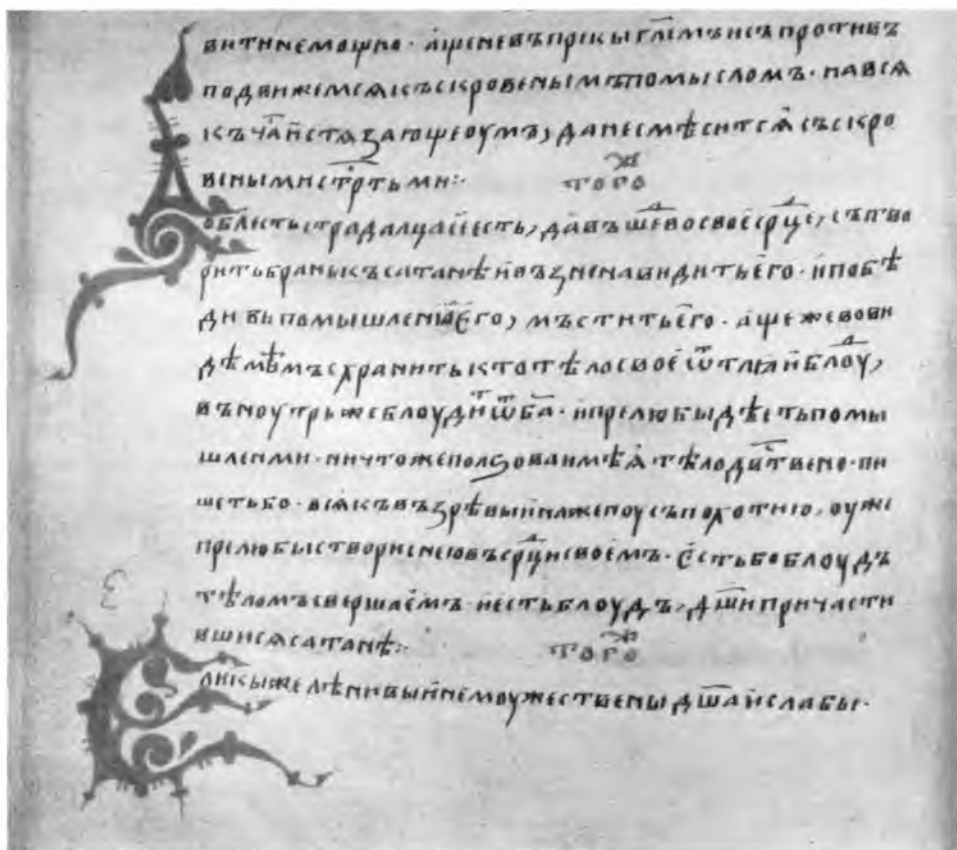 витинемощно · а҆щеневъпрекыгл҃емъисъпротивъ
подвижемсѧкъскровенымъпомысломъ · навсѧ
къчⷭ҇аи҆стѧзающеоумъ, данесмѣситсѧ̀съскро
венымистрⷭ҇тьми:·
тогоⷤ
доблестьстрадалцасеєсть, да̀въшеⷣвосвоєсрⷣце, сътво
ритьбраньксатанѣи҆възненавидитьє҆го · и҆побѣ
дивьпомышлениꙗ҆є҆го, мъститьє҆го · а҆щежевови
дѣмѣмъсхранитьктотѣлосвоєѿтлѧи҆блоуⷣ,
въноутрьжеблоудиⷮѿба҃ · и҆прелюбыдѣєтьпомы
шленми · ничтожеползоваимѣѧ̀тѣлодв҃ⷭтвено · пи
шетьбо · всѧкъвъзрѣвыи҆наженоусъпохотию, оуже
прелюбыствориснеювъсрⷣцисвоємъ · є҆стьбоблоудъ
тѣломъсвершаємъ · и҆естьблоудъ, дш҃ипричасти
вшисѧсатанѣ:·
тогоⷤ
Е
ликыжелѣнивыи҆немоужественыдш҃аи҆слабы ·